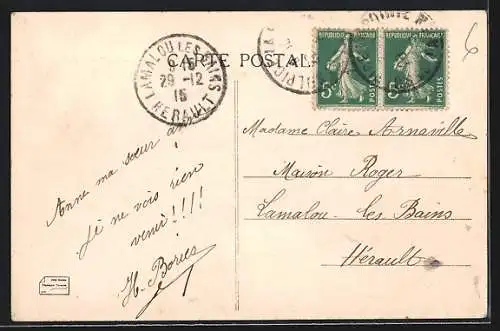 CARTE POSTALE
LAMALOU LES BAINS
29 -12
15
HERAULT
REPUBLIQUE FRANÇAISE
REPUBLIQUE FRANÇAISE
5c
5c
6
Anne ma sœur an
je ne vois rien
venir!!!!
H. Borees
Madame Claire Arnaville
Maison Roger
Lamalou-les Bains
Hérault